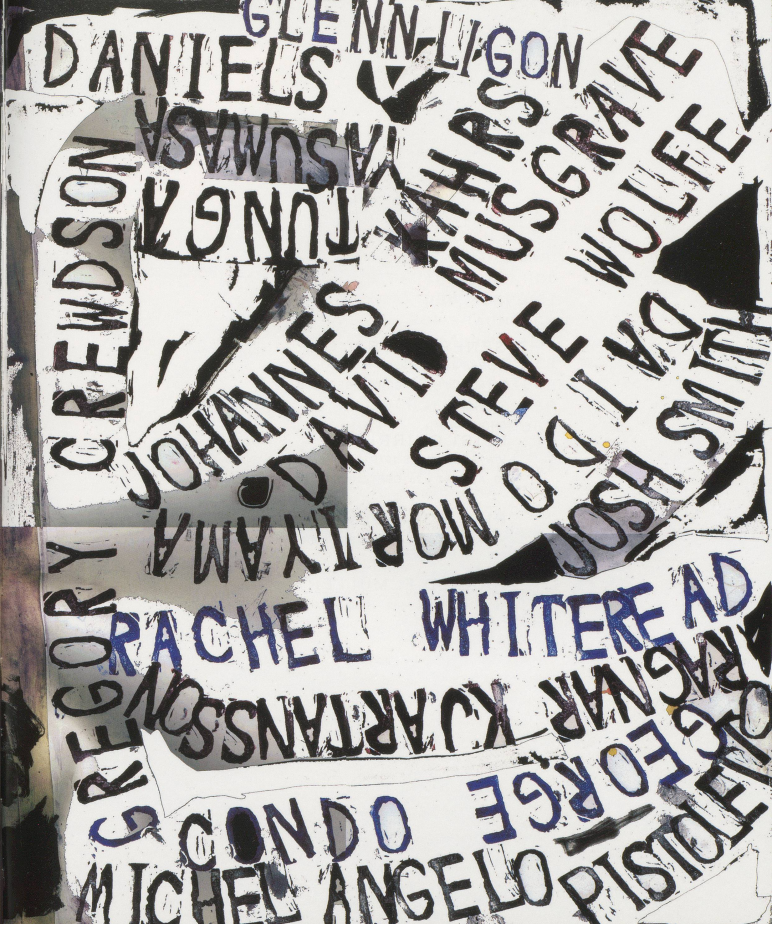 GLENN LIGON
DANIELS
YASUMASA
TUNGA
GREGORY CREWDSON
JOHANNES KAHRS
DAVID MUSGRAVE
STEVE WOLFE
DAIDO MORIYAMA
JOSH SMITH
RACHEL WHITEREAD
RAGNAR KJARTANSSON
GEORGE CONDO
MICHEL ANGELO PISTOLETTO